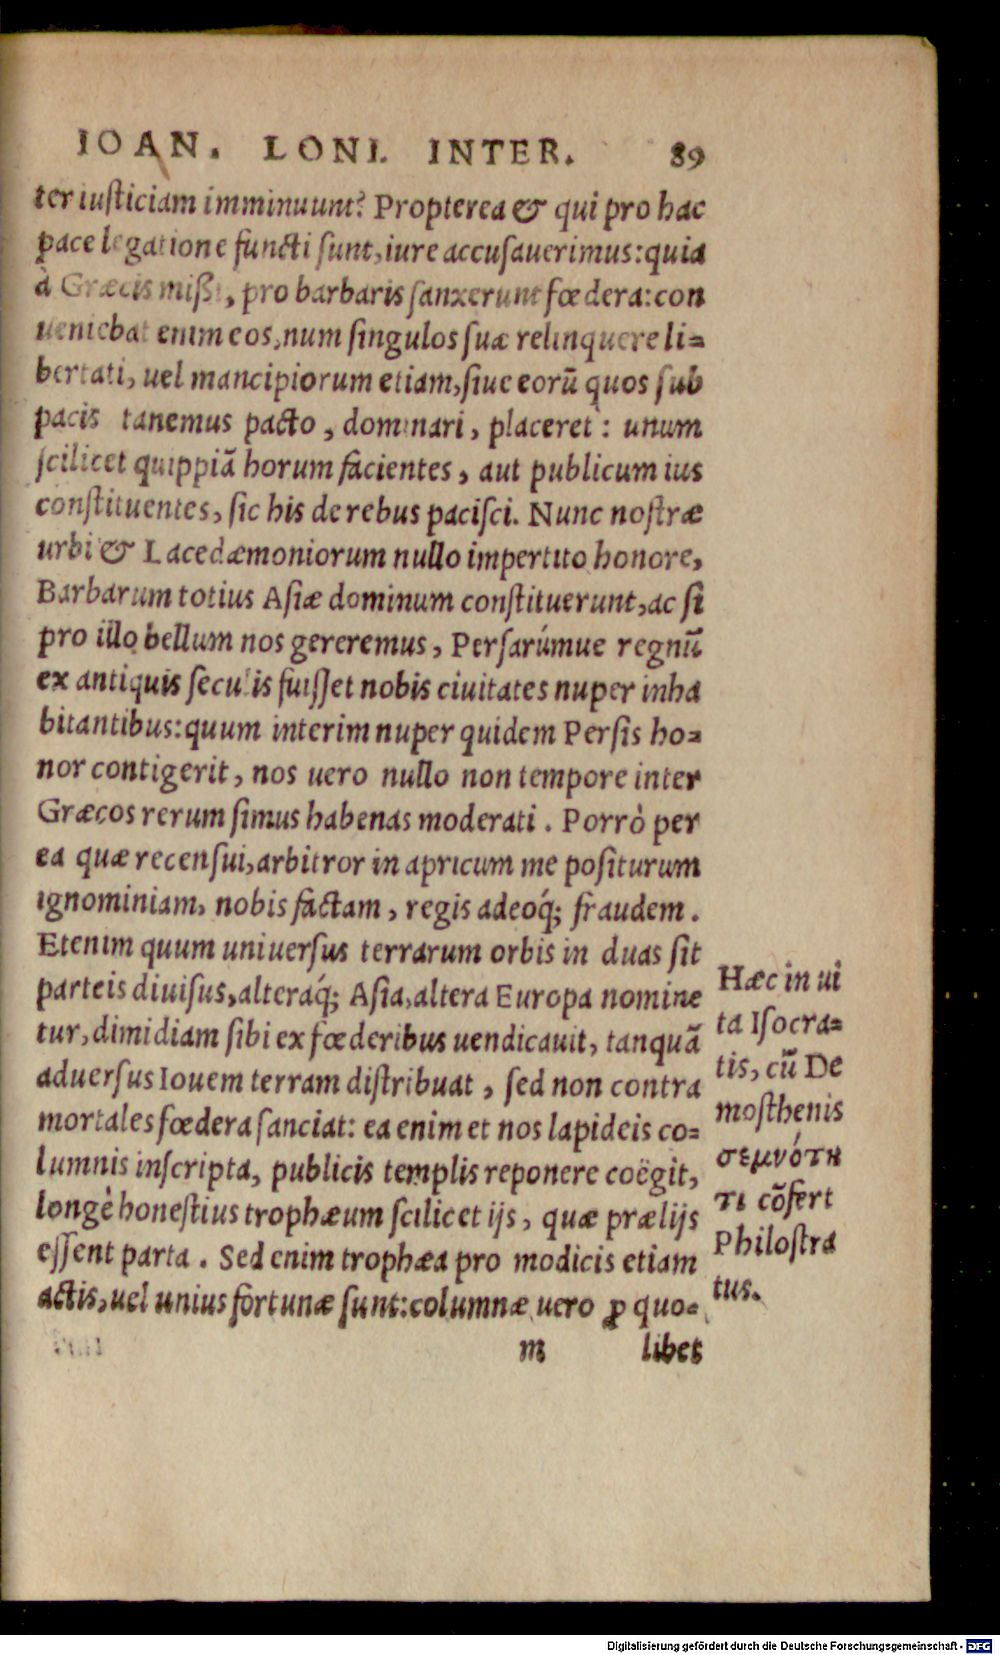 IOAN. LONI. INTER. 89
ter iuſticiam imminuunt? Propterea & qui pro hac
pace legatione functi ſunt, iure accuſauerimus: quia
à Græcis miſſi, pro barbaris ſanxerunt fœdera: con
ueniebat enim eos, num ſingulos ſuæ relinquere li-
bertati, uel mancipiorum etiam, ſiue eorū quos ſub
pacis tanemus pacto, dominari, placeret: unum
ſcilicet quippiā horum facientes, aut publicum ius
conſtituentes, ſic his de rebus paciſci. Nunc noſtræ
urbi & Lacedæmoniorum nullo impertito honore,
Barbarum totius Aſiæ dominum conſtituerunt, ac ſi
pro illo bellum nos gereremus, Perſarúmue regnū
ex antiquis ſeculis fuiſſet nobis ciuitates nuper inha
bitantibus: quum interim nuper quidem Perſis ho-
nor contigerit, nos uero nullo non tempore inter
Græcos rerum ſimus habenas moderati. Porrò per
ea quæ recenſui, arbitror in apricum me poſiturum
ignominiam, nobis factam, regis adeoq́; fraudem.
Etenim quum uniuerſus terrarum orbis in duas ſit
parteis diuiſus, alteraq́; Aſia, altera Europa nomine
tur, dimidiam ſibi ex fœderibus uendicauit, tanquā
aduerſus Iouem terram diſtribuat, ſed non contra
mortales fœdera ſanciat: ea enim et nos lapideis co-
lumnis inſcripta, publicis templis reponere coëgit,
longè honeſtius trophæum ſcilicet ijs, quæ prælijs
eſſent parta. Sed enim trophæa pro modicis etiam
actis, uel unius fortunæ ſunt: columnæ uero ꝓ quo-
m libet
Hæc in ui
ta Iſocra-
tis, cū De
moſthenis
σεμνότη
τι cōfert
Philoſtra
tus.
Digitalisierung gefördert durch die Deutsche Forschungsgemeinschaft - DFG